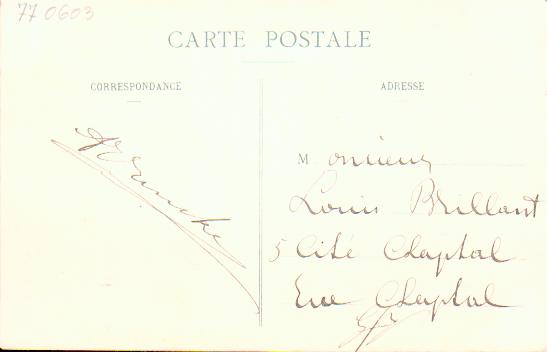 77 0603
CARTE POSTALE
CORRESPONDANCE
ADRESSE
Monsieur
Louis Brillant
5 Cité Chaptal
Rue Chaptal